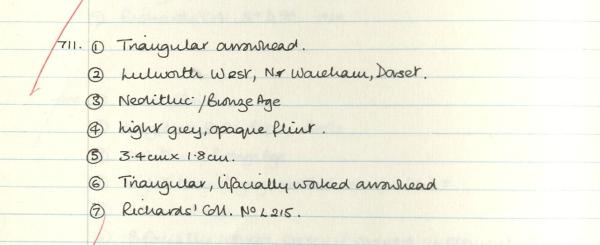 711. ① Triangular arrowhead.
② Lulworth West, Nr Wareham, Dorset.
③ Neolithic/Bronze Age
④ Light grey, opaque flint.
⑤ 3.4cm x 1.8cm.
⑥ Triangular, bifacially worked arrowhead
⑦ Richards' Coll. No L215.